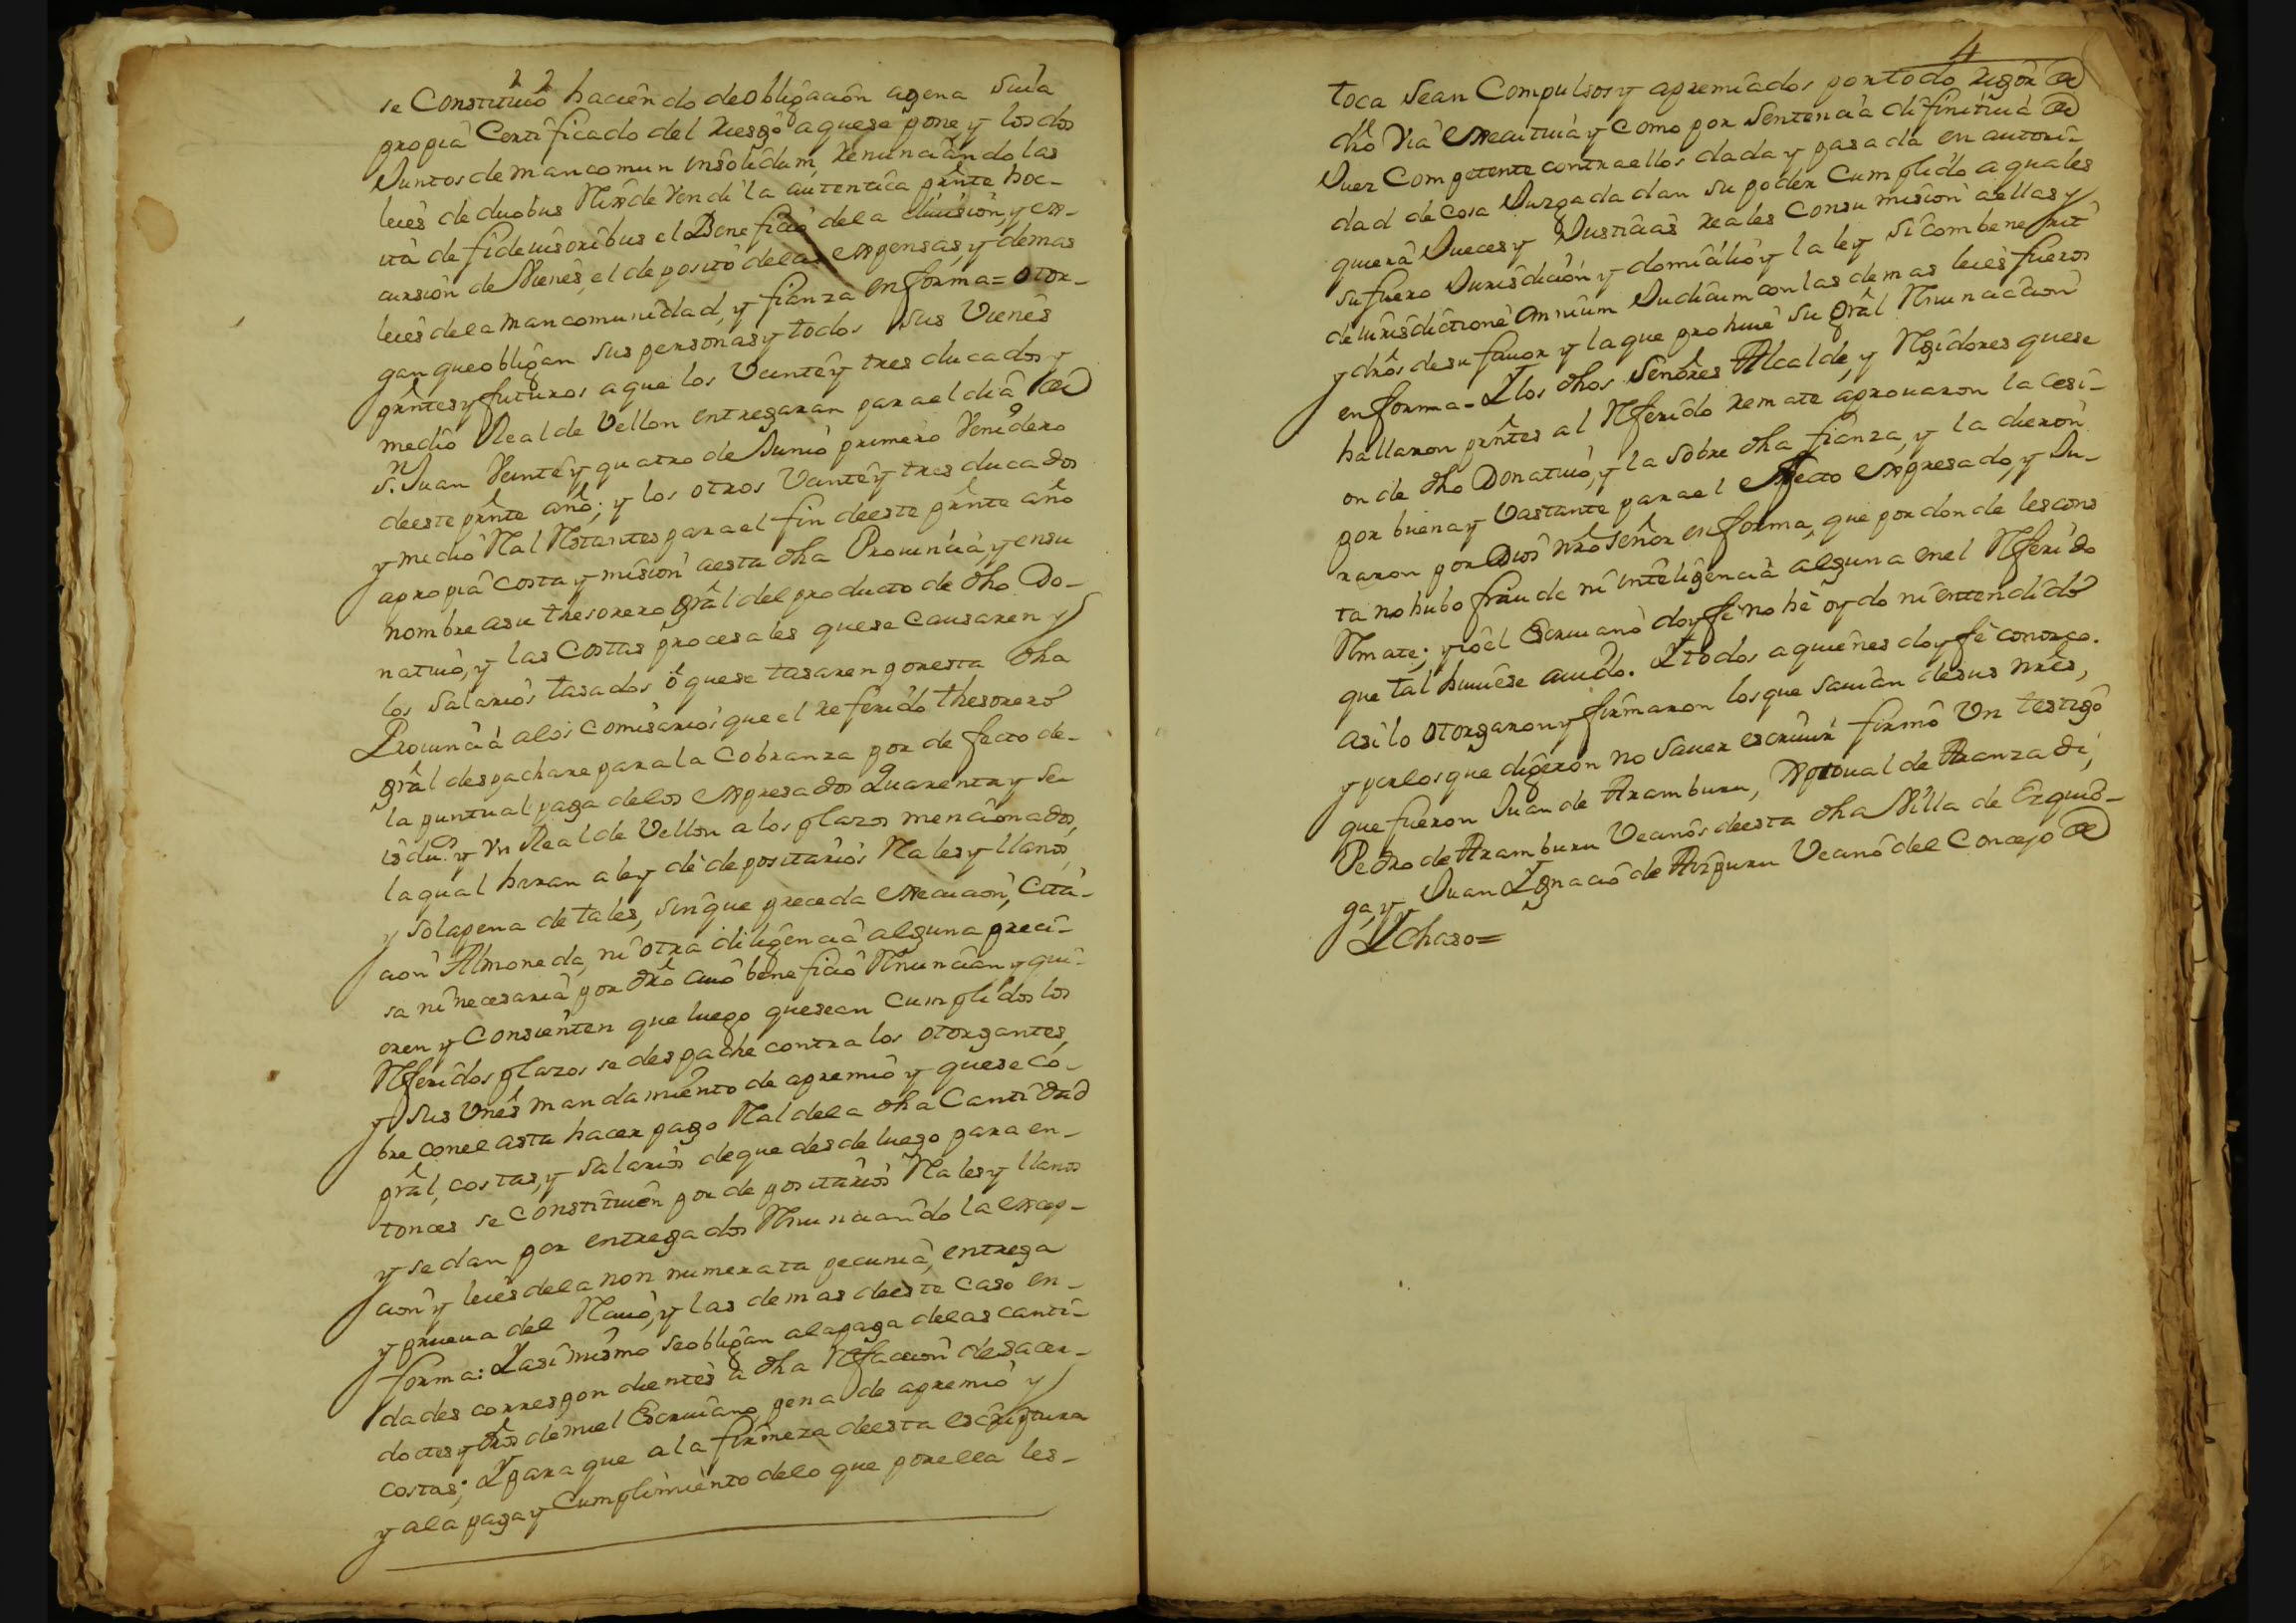 se Constituió haciendo de obligación agena suia
propia Certificado del riesgo a que se pone, y los dos
Juntos de mancomun insolidum, renunciando las
leies de duobus Rex de vendi la autentica pñte hoc-
ita de fideiusoribus el Beneficio dela diuision, y ex-
cursion de Vienes, el deposito delas expensas, y demas
leies dela mancomunidad, y fianza en forma = otor-
gan que obligan sus personas y todos sus Vienes
pñtes y futuros a que los Veinte y tres ducados y
medio Real de Vellon entregaran para el dia de
S.n Juan Veinte y quatro de Junio primero Venidero
deeste pñte año; y los otros Veinte y tres ducados
y medio Ral Restantes para el fin deeste pñte año
apropia costa y mision aesta dha Prouincia, y ensu
nombre asu thesorero grâl del producto de dho Do-
natiuo, y las Costas procesales que se Causaren y
los Salarios tasados ó que se tasaren por esta dha
Prouincia alos comisarios que el referido thesorero
grâl despachare para la Cobranza por defecto de-
la puntual paga delos expresados Quarenta y seis
du.s y Vn Real de Vellon a los plazos mencionados,
la qual haran a ley de depositarios Rales y llanos,
y sola pena de tales, sin que preceda execucion, Cita-
cion Almoneda, ni otra diligencia alguna preci-
sa ni necesaria por dro cuio beneficio Renuncian y qui-
eren y Consienten que luego que sean Cumplidos los
Referidos plazos se despache contra los otorgantes,
y sus Vnês mandamiento de apremio y que se co-
bre con el asta hacer pago Ral dela dha Cantidad
prâl, costas, y Salarios de que desde luego para en-
tonces se Constituien por depositarios Rales y llanos
y se dan por entregados Renunciando la excep-
cion y leies dela non numerata pecunia, entrega
y prueua del Reciuo, y las demas deeste Caso en-
forma: Y asimismo se obligan ala paga delas canti-
dades correspondientes à dha Refaccion de Sacer-
dotes y dros de mi el Escriuano, pena de apremio y
costas; Y para que a la firmeza deesta escriptura
y ala paga y Cumplimiento delo que por ella les-
4
toca sean Compulsos y apremiados por todo rigor de
dro Via executiua y como por Sentencia difinitiua de
Juez Competente contra ellos dada y pasada en autori-
dad de cosa Juzgada dan su poder Cumplido a quales
quiera Jueces y Justicias reales Consu mision aellas y
su fuero Jurisdicion y domicilio y la ley si combenerit
de iurisdictione omnium Judicum con las demas leies fueros
y drõs de su fauor y la que prohiue su grâl Renunciacion
en forma = Y los dhos Señores Alcalde, y Regidores que se
hallaron pñtes al Referido remate aprouaron la cesi-
on de dho Donatiuo, y la sobre dha fianza, y la dieron
por buena y Vastante para el efecto expresado, y Ju-
raron por Dios nrô Señor en forma, que por donde les cons
ta no hubo fraude ni inteligencia alguna en el Referido
Remate; y io el Escriuano doy fe no hè oydo ni entendido
que tal huuiese auido. Y todos a quienes doy fè conozco.
asi lo otorgaron y firmaron los que sauian desus nrês,
y por los que digeron no sauer escriuir firmó Vn testigo
que fueron Juan de Aramburu, Xptoual de Aranzadi,
Pedro de Aramburu Vecinos deesta dha Villa de Ezquio-
ga, y Juan Ygnacio de Aizpuru Vecino del Concejo de
Ychaso =